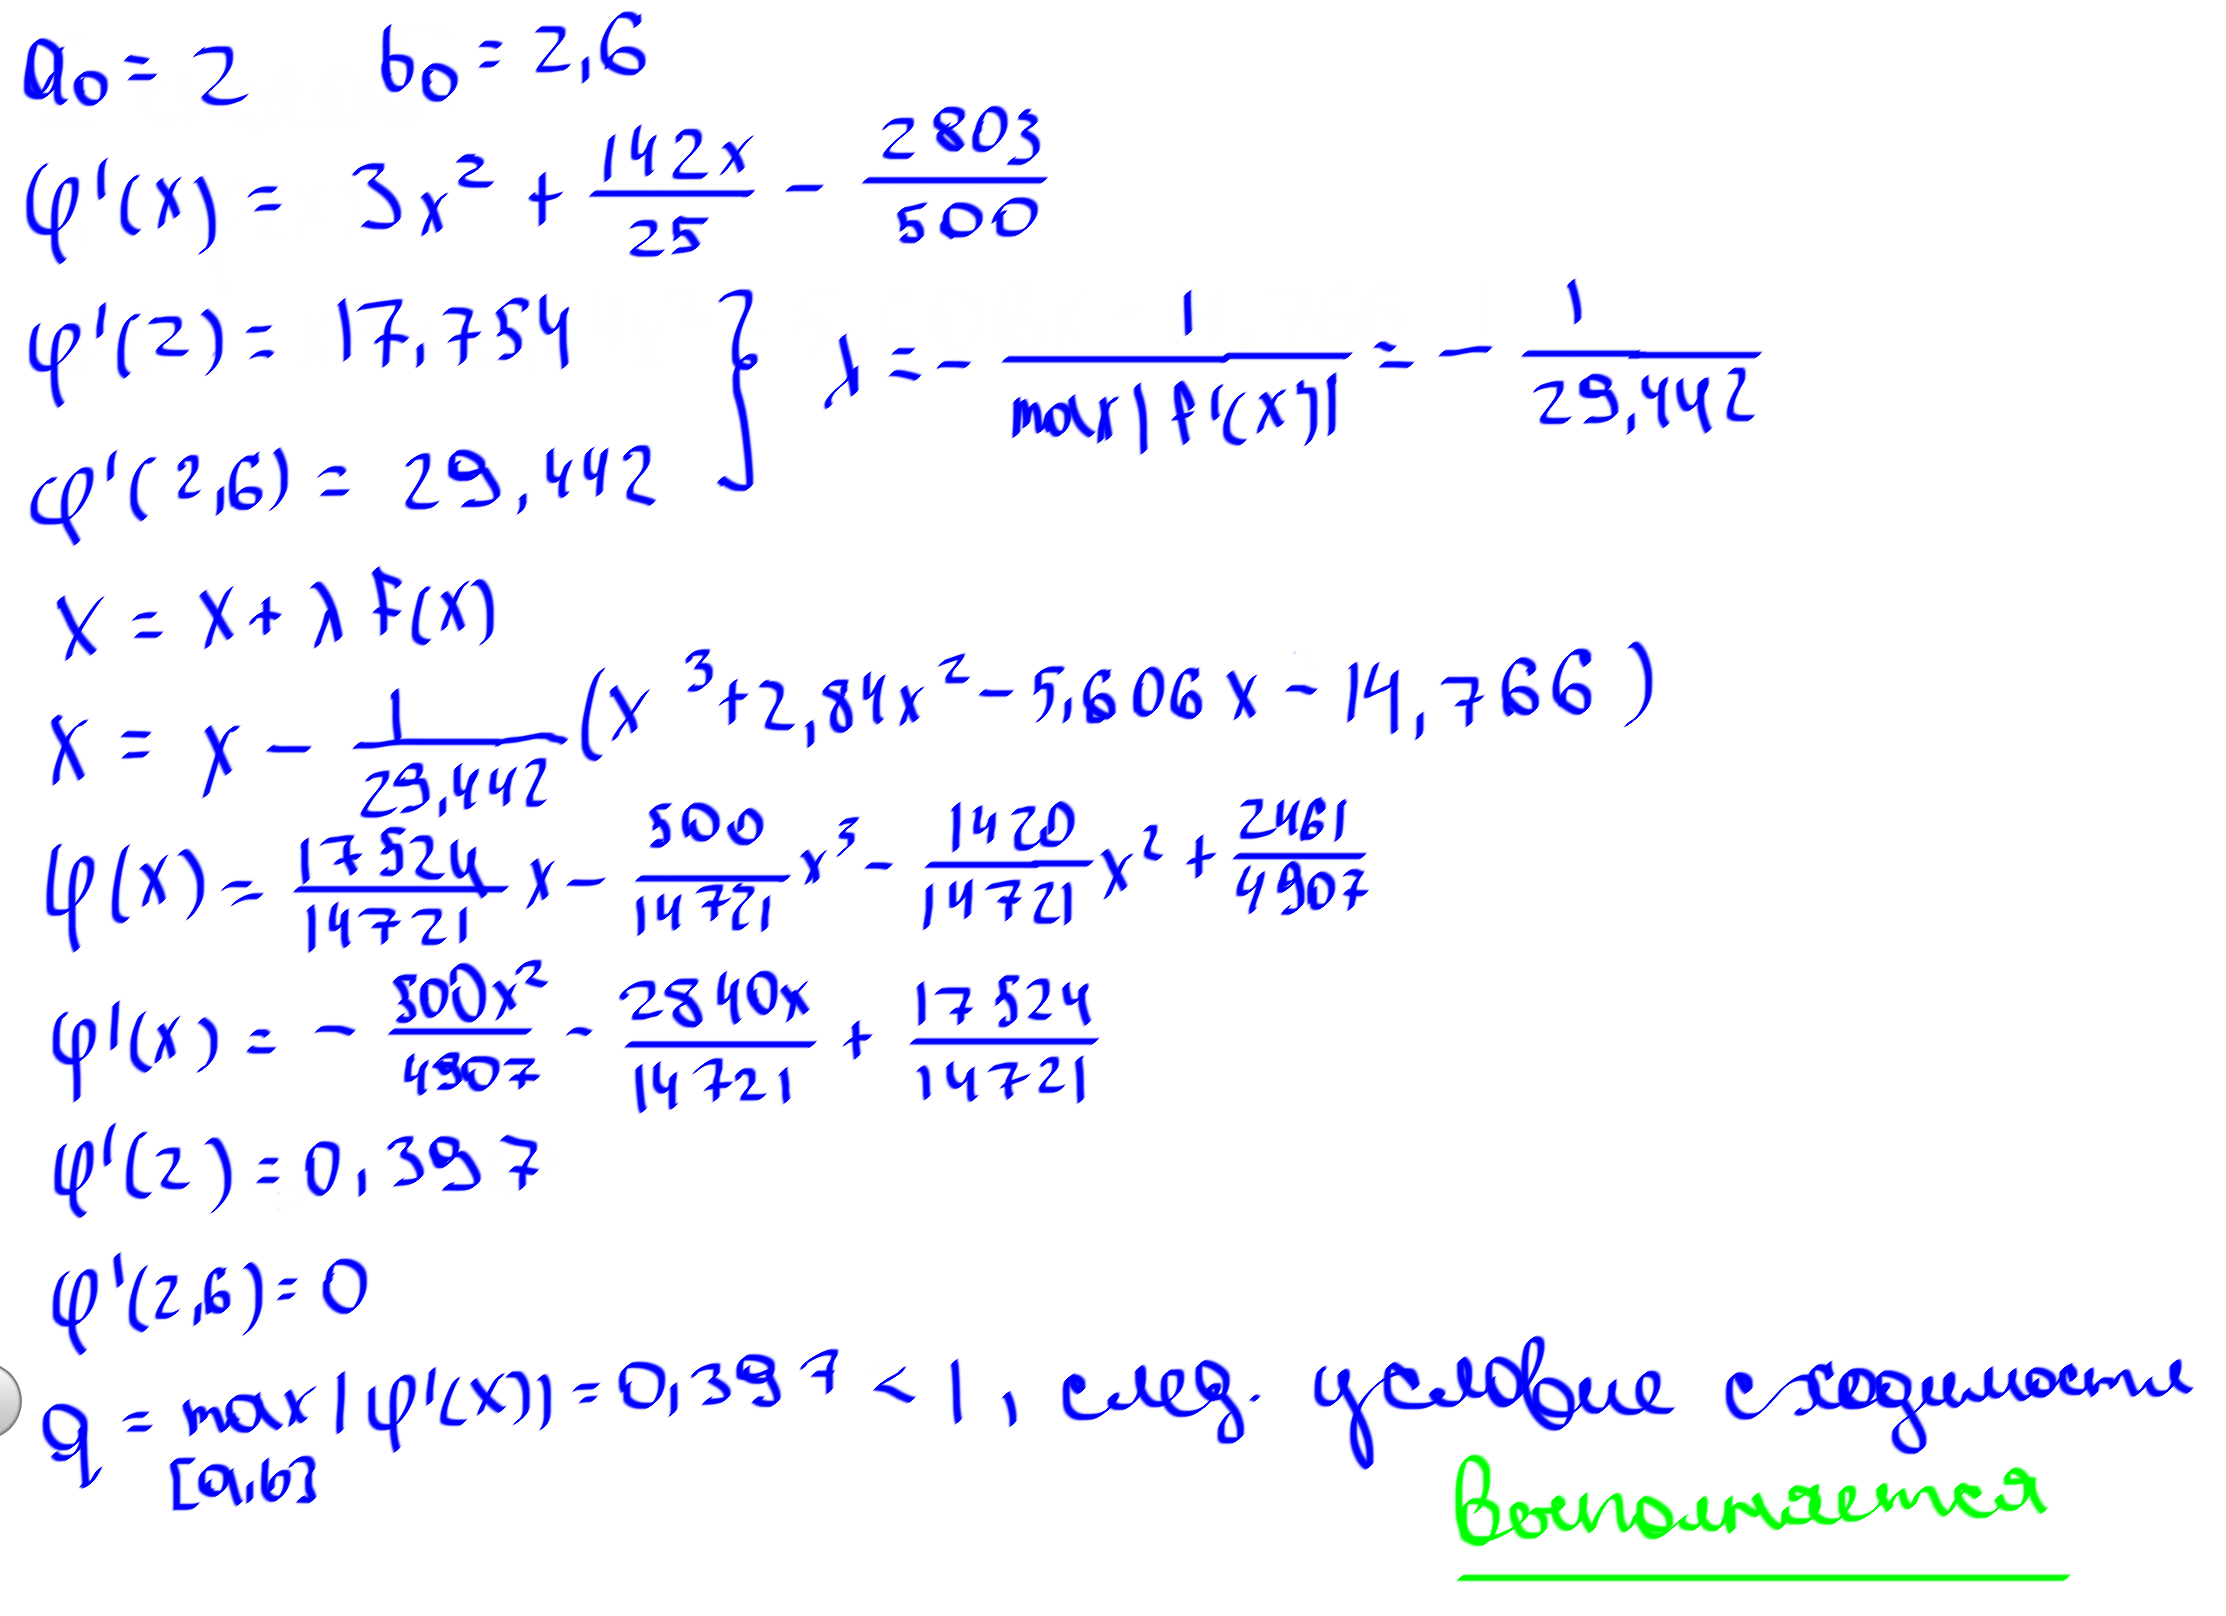 a₀ = 2 b₀ = 2,6
φ'(x) = 3x² + 142x/25 - 2803/500
φ'(2) = 17,754 } λ = - 1/max|f'(x)| = - 1/29,442
φ'(2,6) = 29,442
x = x + λ f(x)
x = x - 1/29,442 (x³ + 2,84x² - 5,606x - 14,766)
φ(x) = 17524/14721 x - 500/14721 x³ - 1420/14721 x² + 2461/4907
φ'(x) = - 500x²/4907 - 2840x/14721 + 17524/14721
φ'(2) = 0,397
φ'(2,6) = 0
q = max |φ'(x)| = 0,397 < 1, след. условие сходимости
[a,b]
выполняется